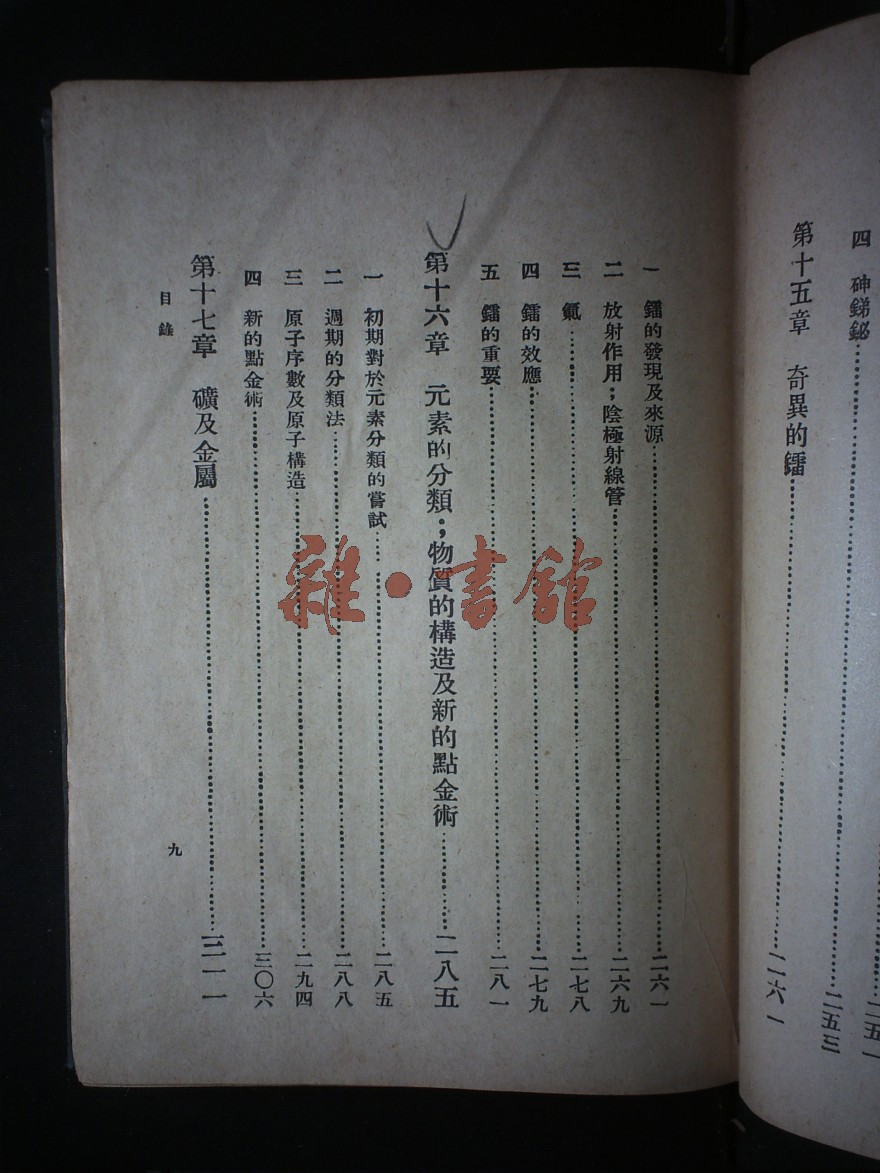 二五一
四 砷銻鉍……二五三
第十五章 奇異的鐳……二六一
一 鐳的發現及來源……二六一
二 放射作用；陰極射線管……二六九
三 氡……二七八
四 鐳的效應……二七九
五 鐳的重要……二八一
第十六章 元素的分類；物質的構造及新的點金術……二八五
一 初期對於元素分類的嘗試……二八五
二 週期的分類法……二八八
三 原子序數及原子構造……二九四
四 新的點金術……三〇六
第十七章 礦及金屬……三一一
目錄
九
雜·書館